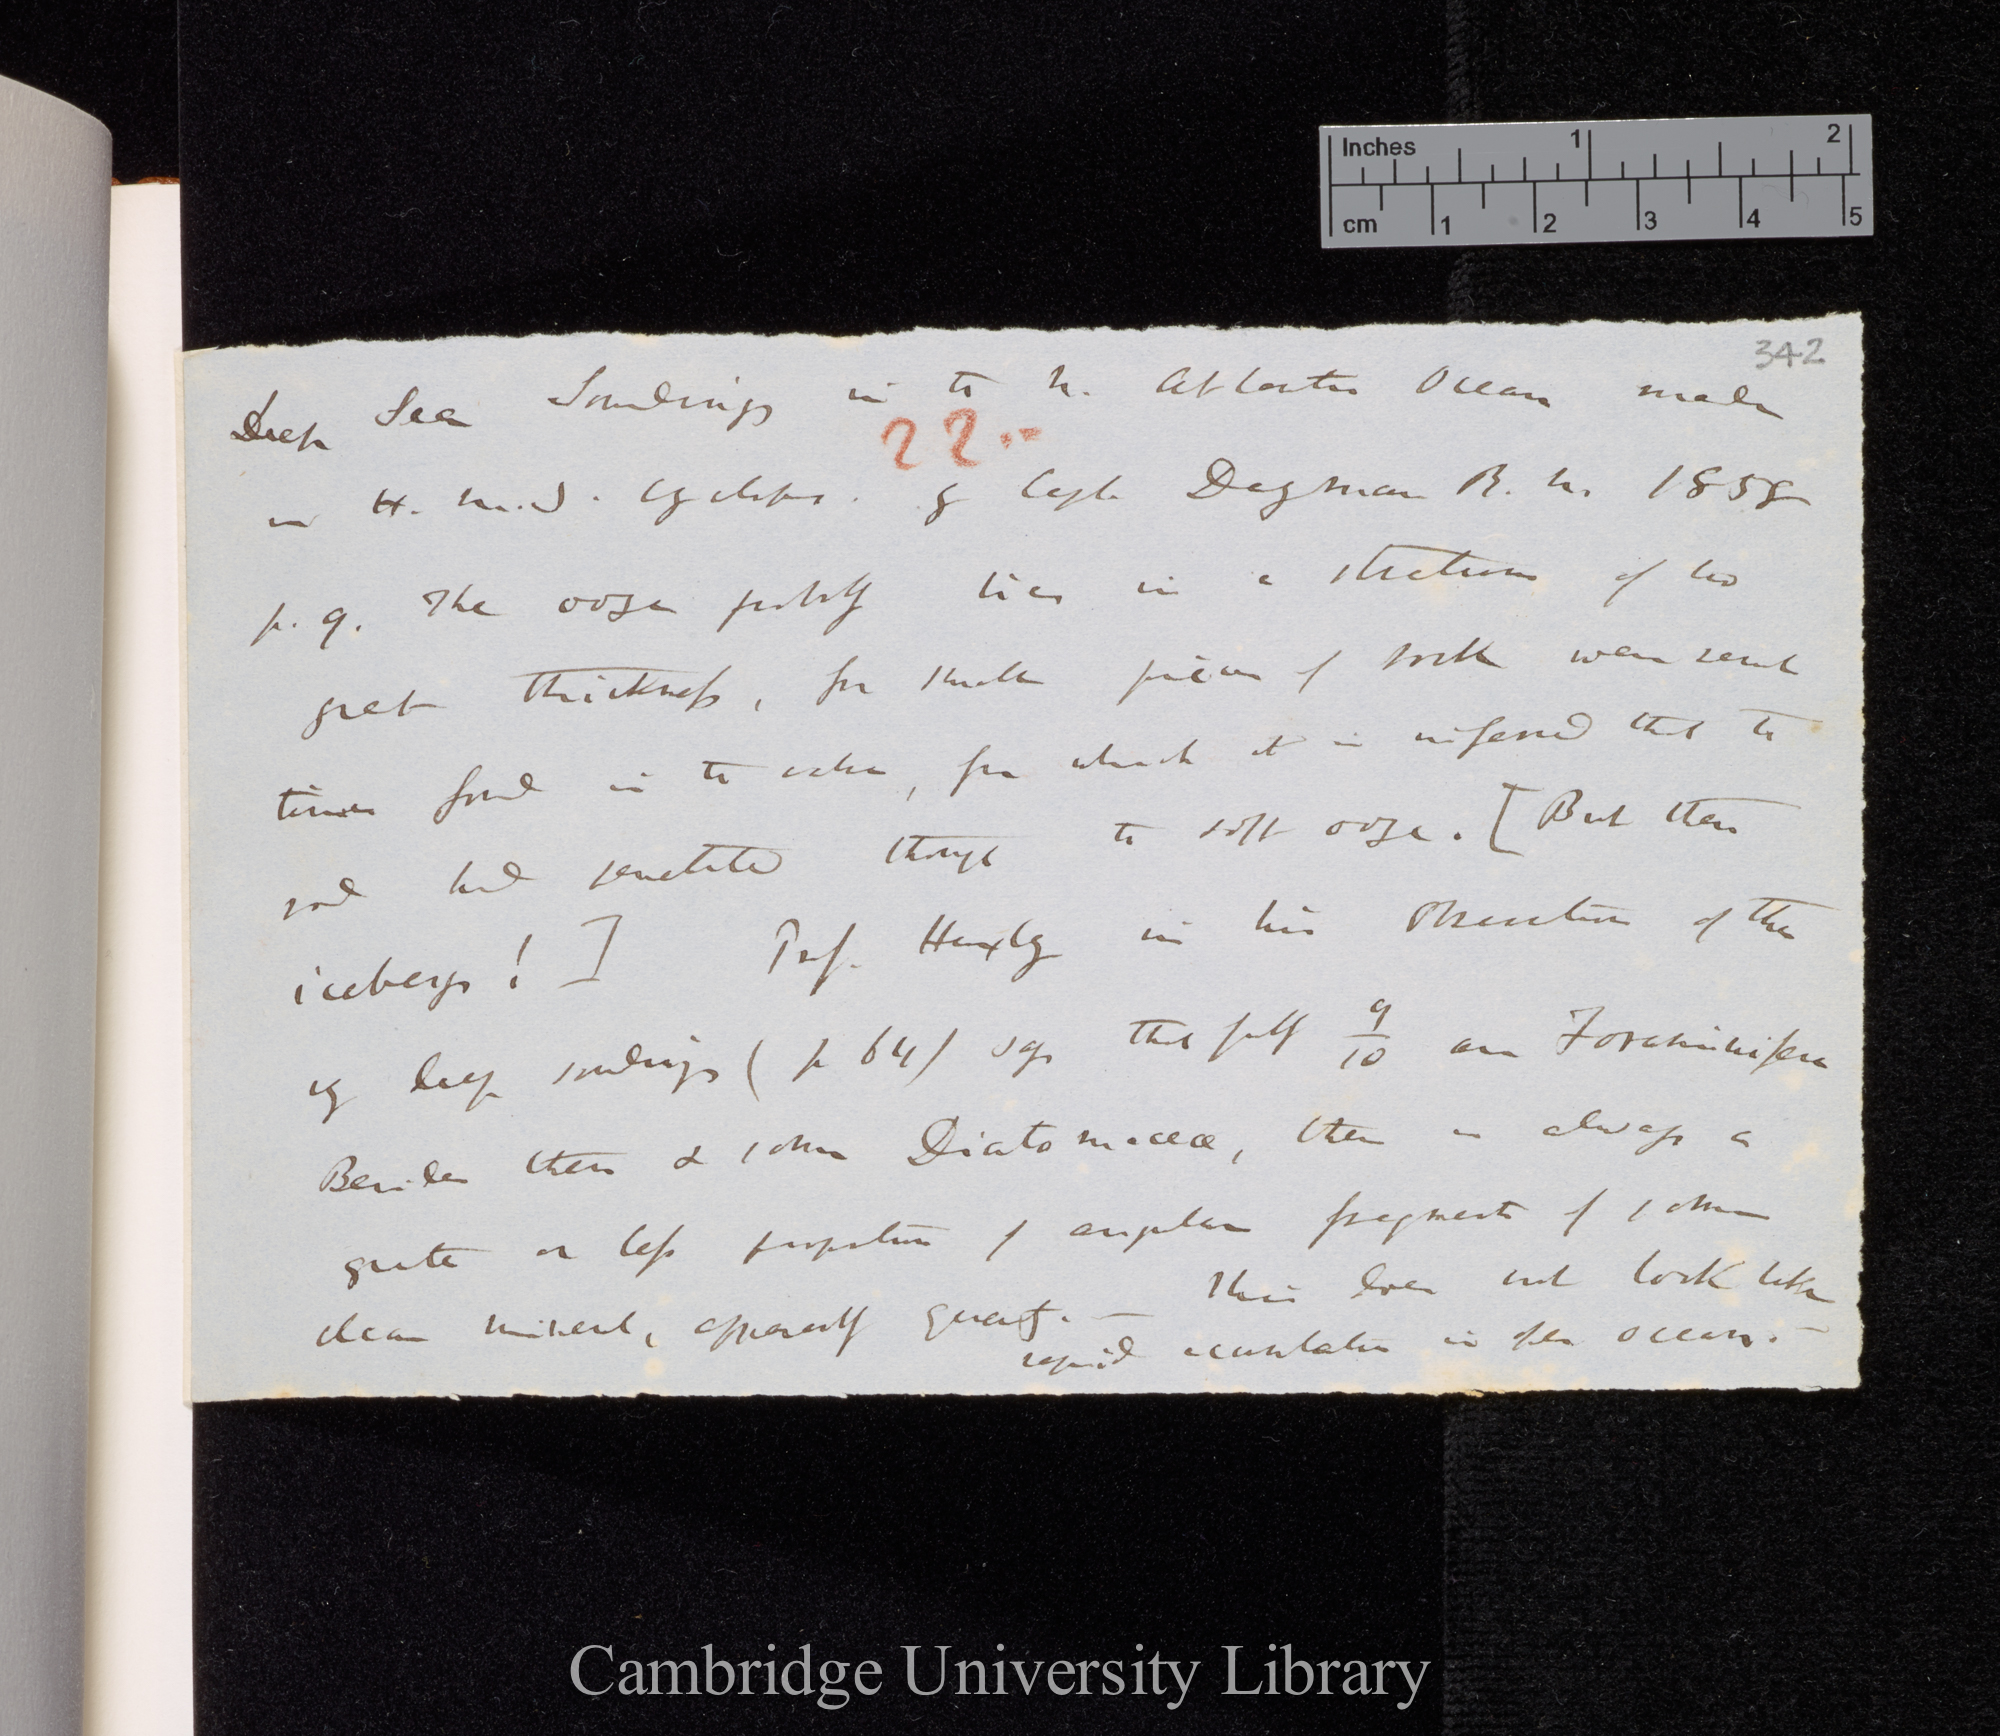 Inches 1 2
cm 1 2 3 4 5
342
Deep Sea Soundings in the N. Atlantic Ocean made
22
in H.M.S. Cyclops. by Capt Dayman R.N. 1858
p. 9. The ooze probably lies in a stratum of no
great thickness, for small pieces of rock were some
times found in the valve, from which it is inferred that the
rod had penetrated through the soft ooze. [But then
icebergs!] Prof. Huxley in his observations of the
deep soundings (p 64) says that fully 9/10 are Foraminifera
Besides these & some Diatomaceæ, there is always a
greater or less proportion of angular fragments of some
clean mineral, apparently quartz. — This does not look like
rapid accumulation in open ocean. —
Cambridge University Library